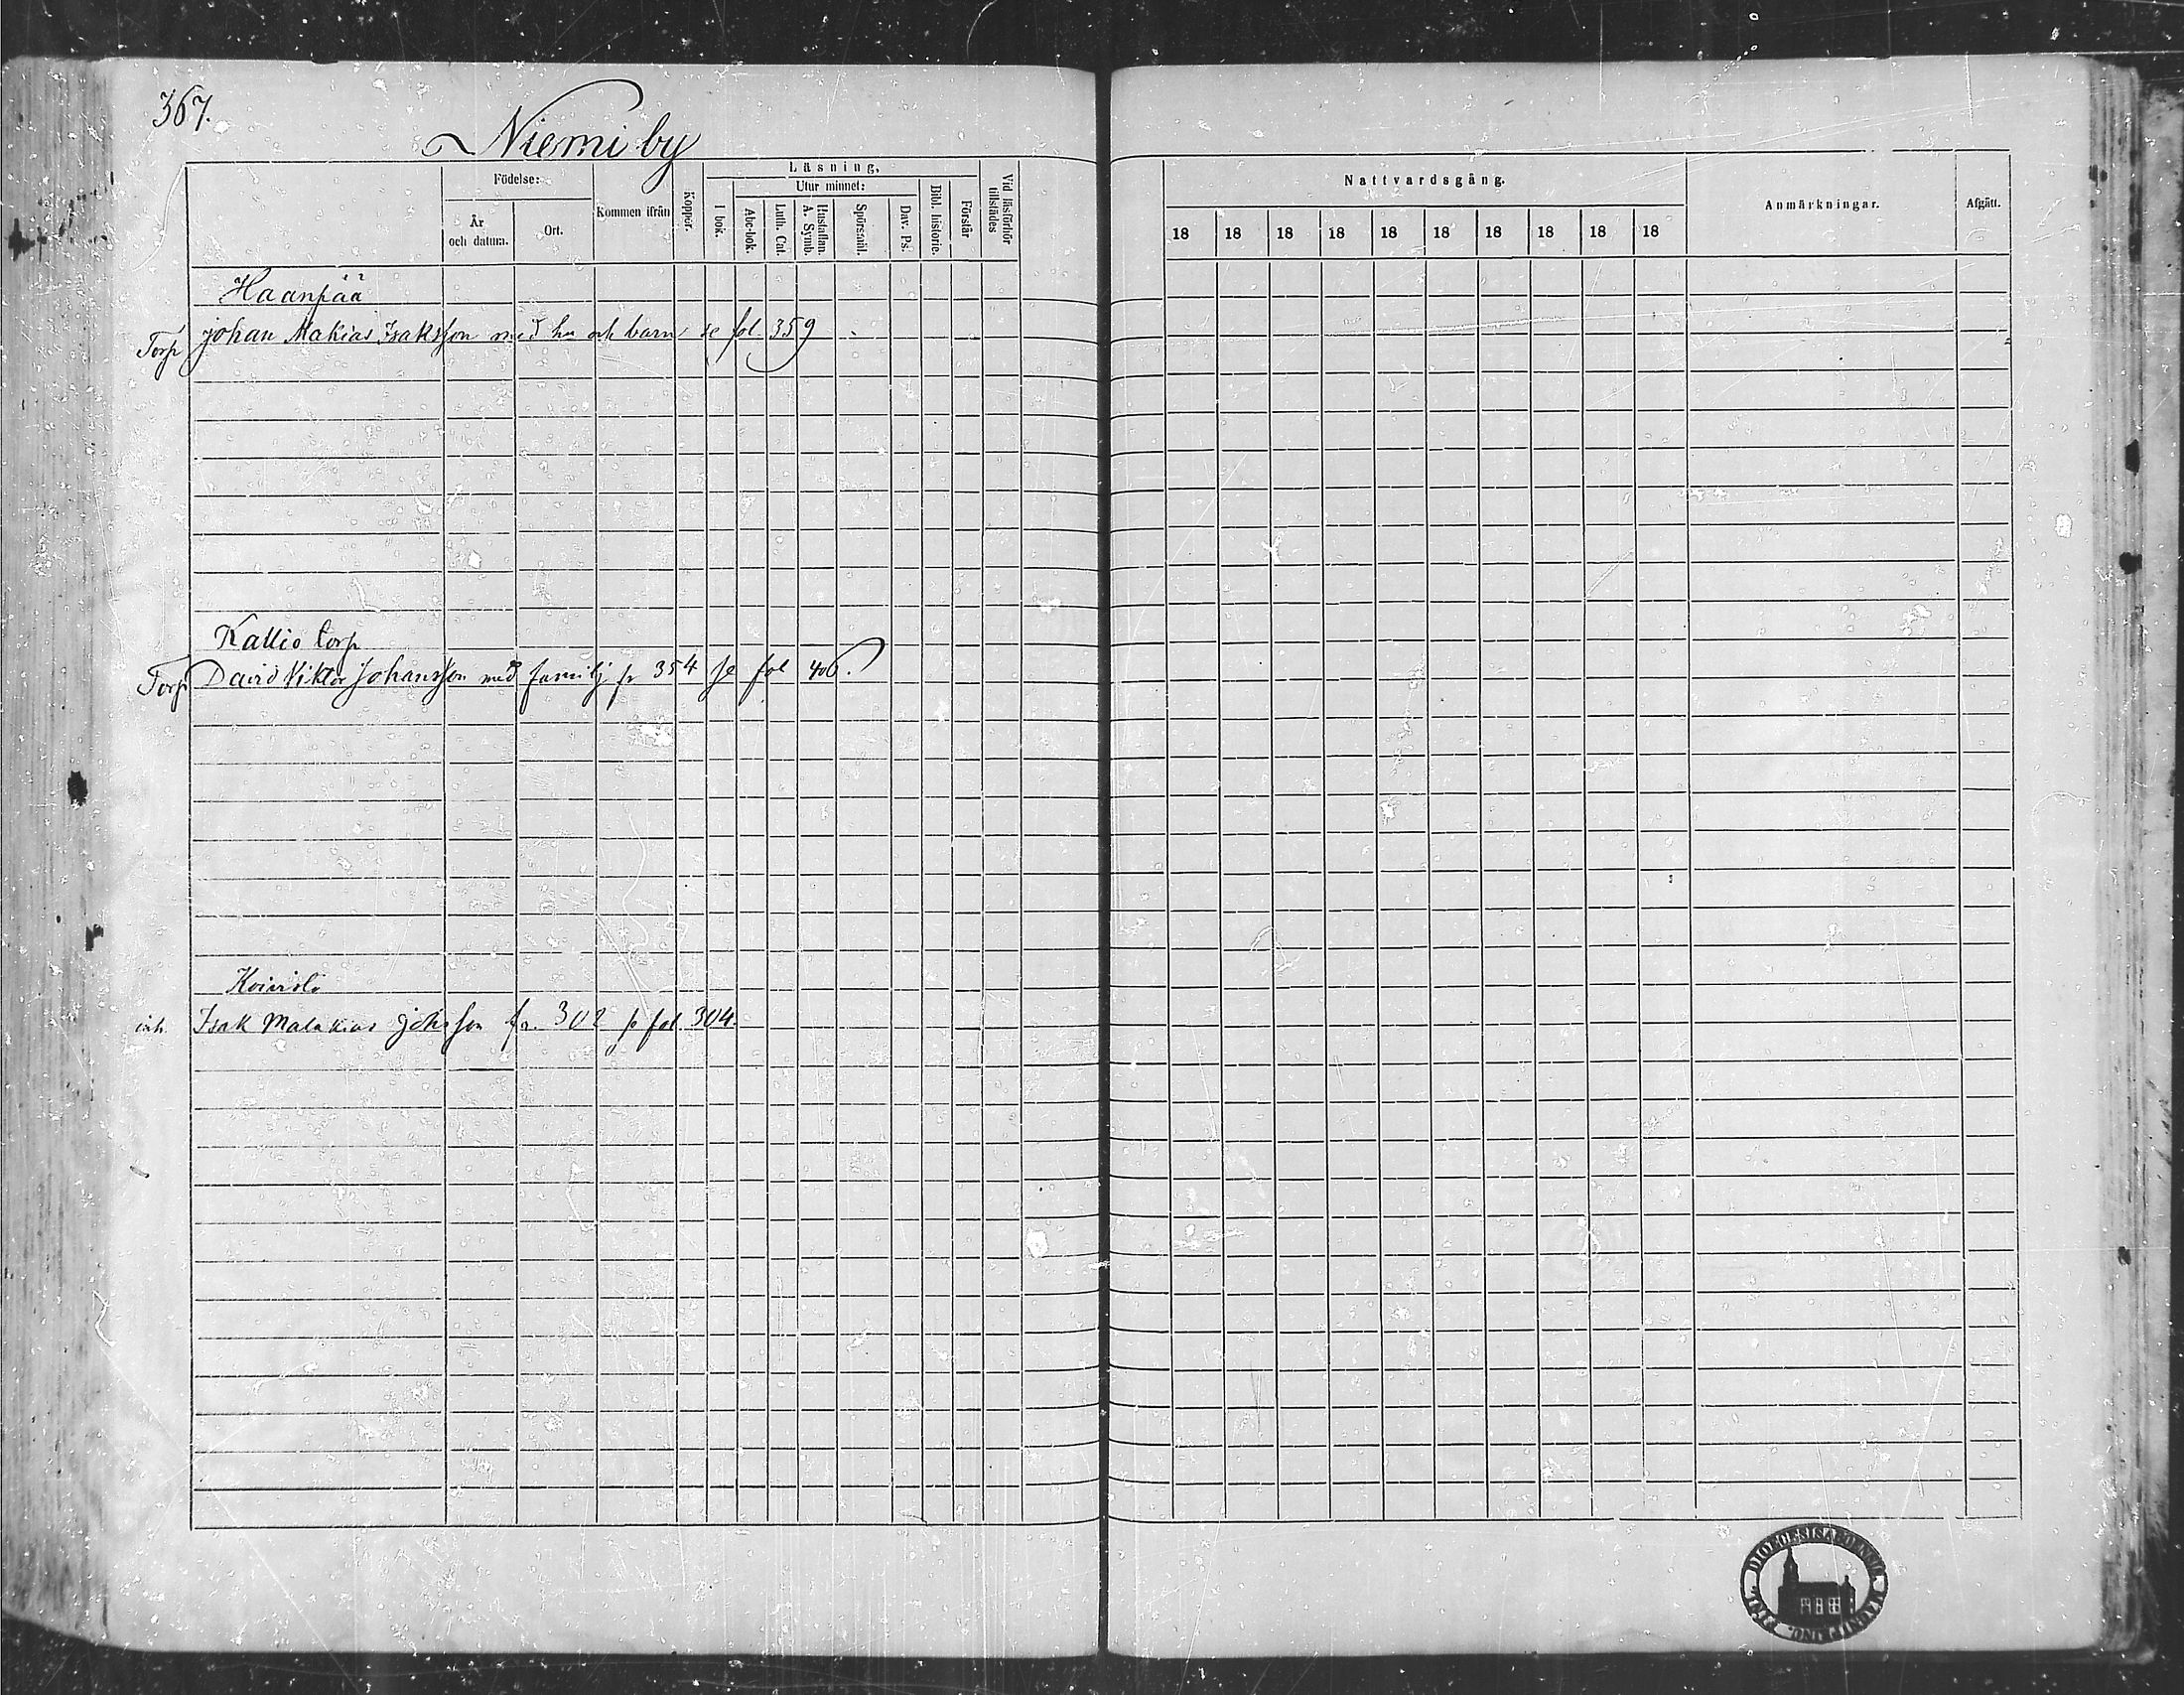 367.
Niemi by
Födelse:
År och datum.
Ort.
Kommen ifrån
Koppor.
Läsning.
I bok.
Utur minnet:
Abc-bok.
Luth. Cat.
Hustaflan. A. Symb.
Spörsmål.
Dav. Ps.
Bibl. historie.
Förstår
Vid läsförhör tillstädes
Nattvardsgång.
18 18 18 18 18 18 18 18 18 18
Anmärkningar.
Afgått.
Haanpää
Torp Johan Makias Isaksson med hu och barn se fol. 359
Kallio torp
Torp David Viktor Johansson med familj fr 354 se fol 406.
Koivisto
inh. Isak Malakias Johsson fr. 302 se fol 304.
DIOECESIS ABOENSIS